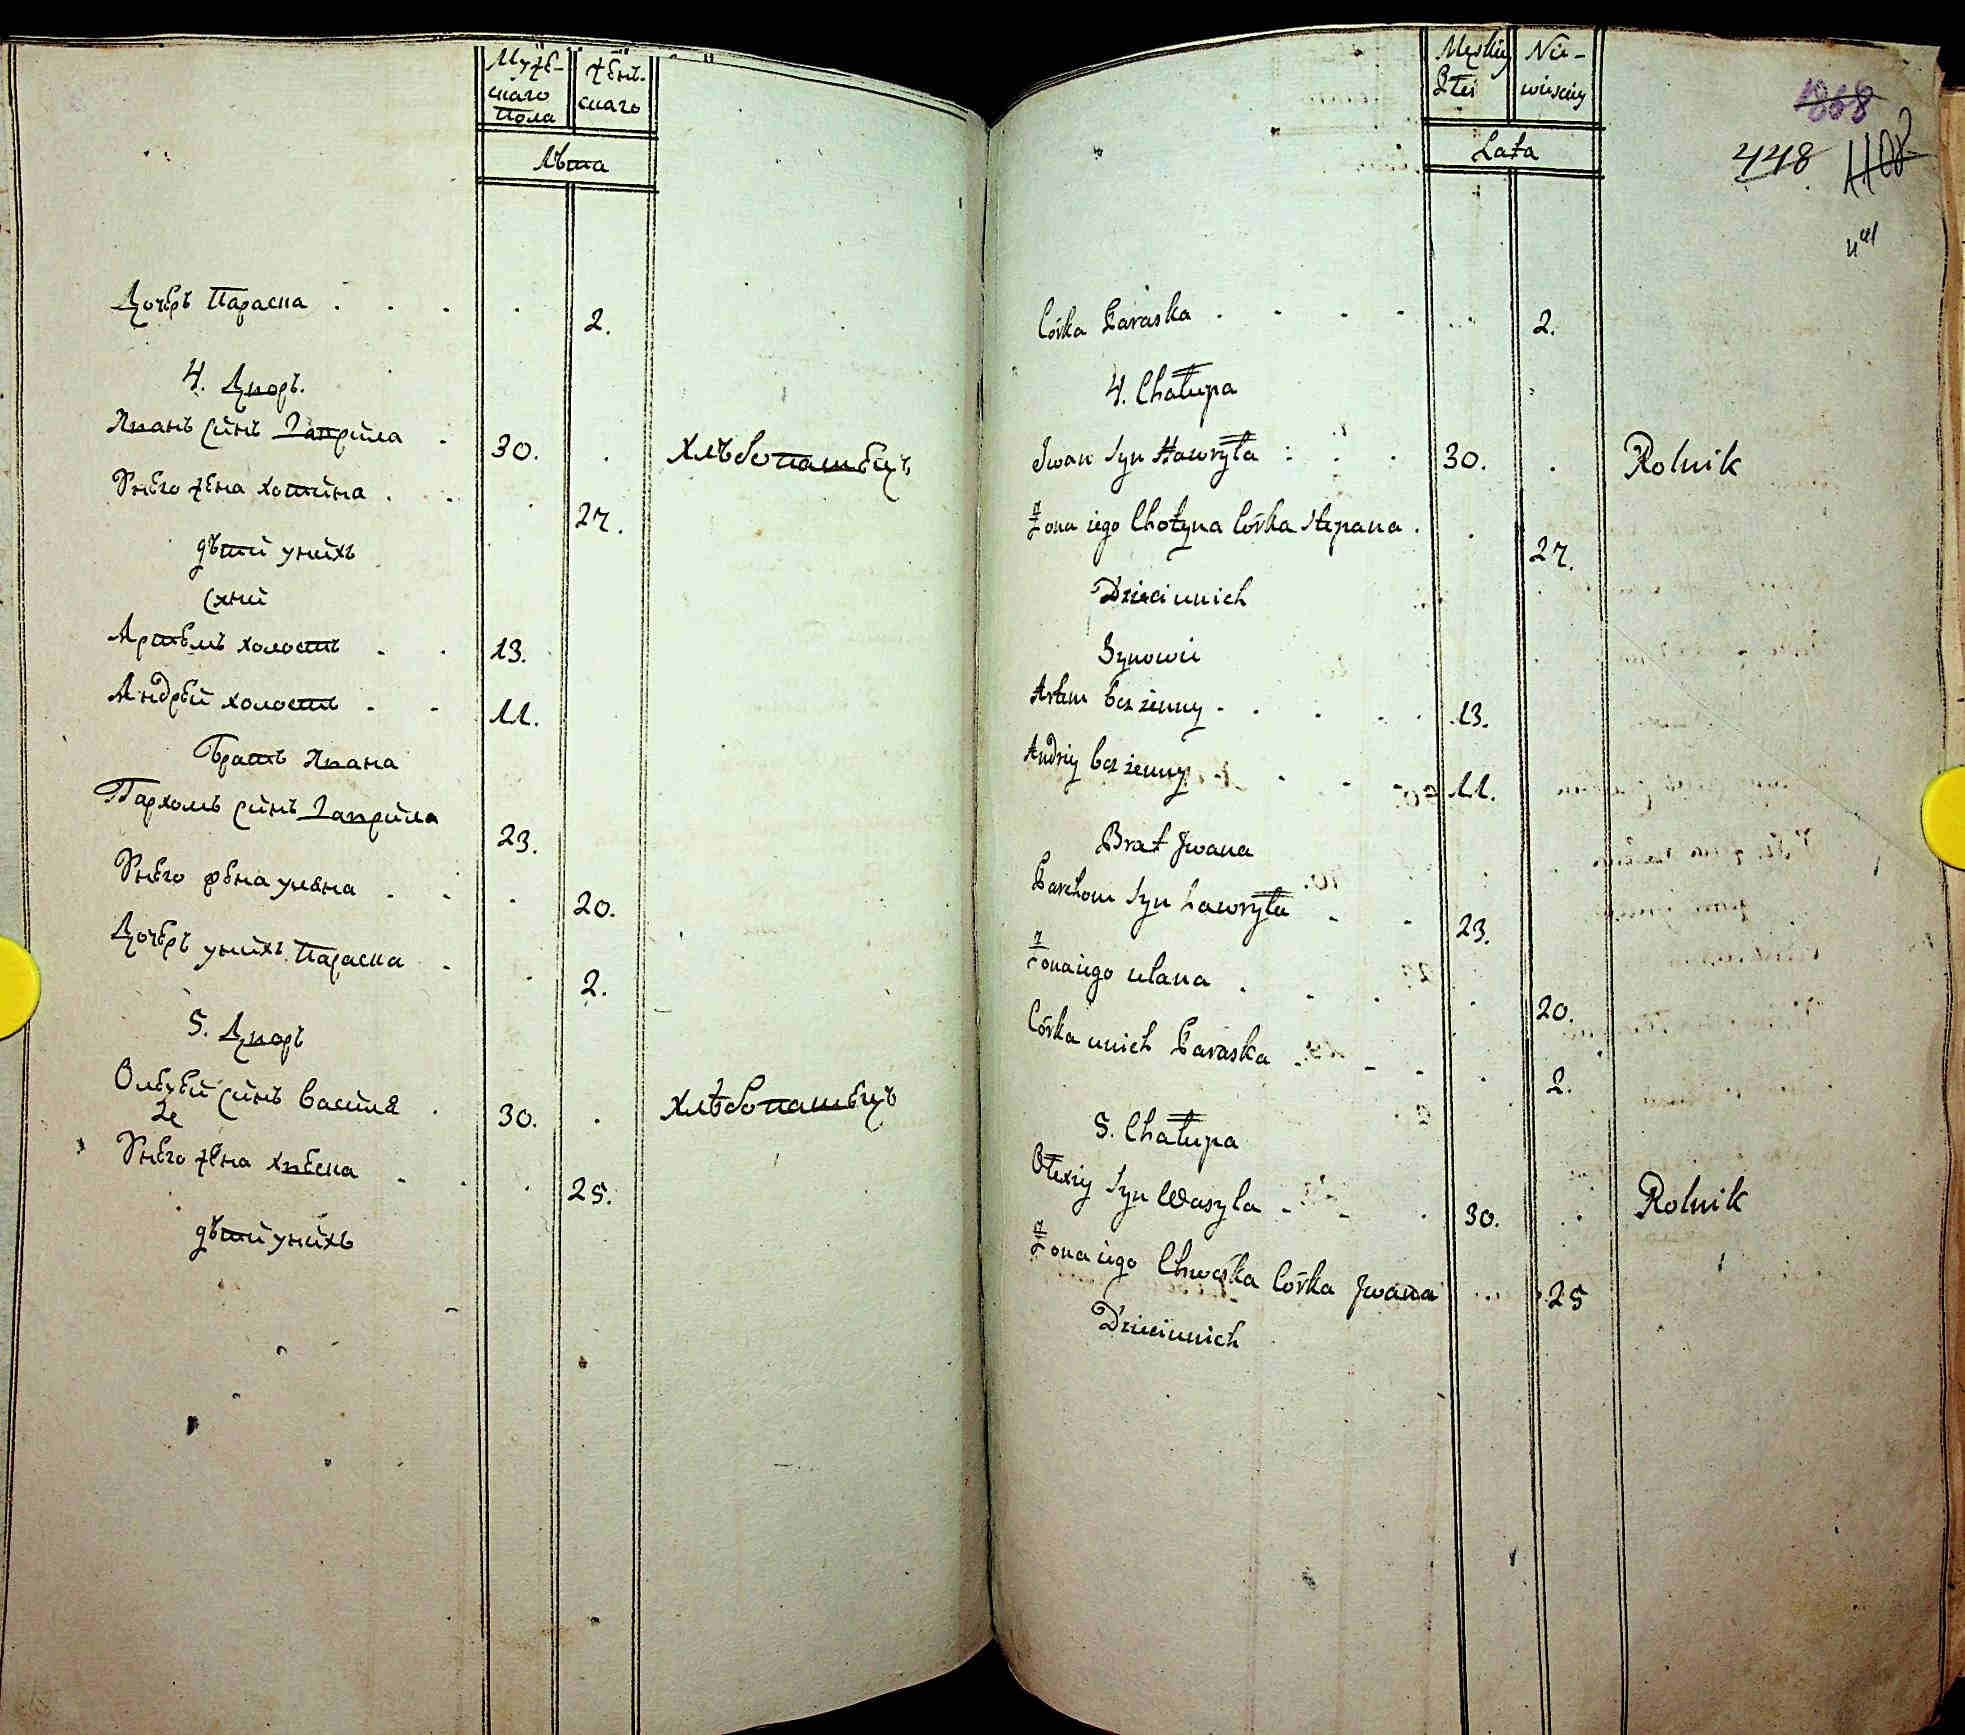 Муже-
скаго
пола
жен-
скаго
Лѣта
Дочерь Параска 2.
4. Дворъ.
Иванъ синъ Гаврила 30. хлѣбопашецъ
У него жена хотина 27.
дѣти у нихъ
сини
Артемъ холостъ 13.
Андрей холостъ 11.
Братъ Ивана
Пархомъ синъ Гаврила 23.
У него жена уляна 20.
Дочерь у нихъ Параска 2.
5. Дворъ
Олексей синъ василя 30. хлѣбопашецъ
У него жена хвеска 25.
дѣти у нихъ
Męskiey
Płci
Nie-
wieściey
Lata
1868
448 1108
Córka Paraska 2.
4. Chałupa
Jwan Syn Hawryła 30. Rolnik
Żona iego Chotyna Córka Stepana 27.
Dzieci unich
Synowie
Artem bez żenny 13.
Andriy bez żenny 11.
Brat Jwana
Parchom Syn Hawryła 23.
Żona iego ulana 20.
Córka unich Paraska 2.
5. Chałupa
Ołexiy Syn Wasyla 30. Rolnik
Żona iego Chweśka Córka Jwana 25
Dzieci unich